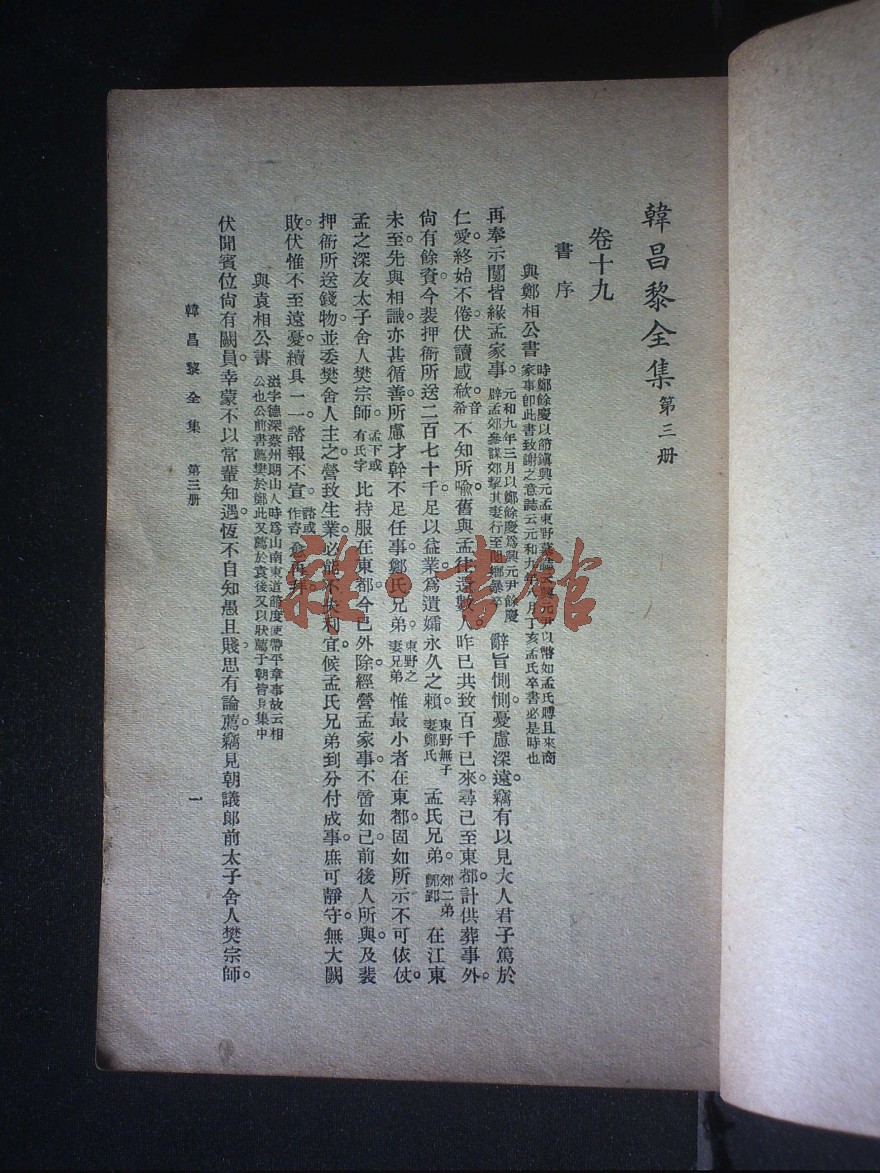 韓昌黎全集 第三册
卷十九
書 序
與鄭相公書 時鄭餘慶以節鎮興元孟東野葬 元尹以幣如孟氏賻且來商
家事卽此書致謝之意誌云元和九年 月丁亥孟氏卒書必是時也
再奉示問皆緣孟家事。元和九年三月以鄭餘慶爲興元尹餘慶辟孟郊參謀郊挈其妻行至閿鄉暴卒 辭旨惻惻。憂慮深遠。竊有以見大人君子篤於
仁愛。終始不倦。伏讀感欷。音希 不知所喩。舊與孟往還數人。昨已共致百千已來。尋已至東都。計供葬事外。
尙有餘資。今裴押衙所送二百七十千。足以益業。爲遺孀永久之賴。東野無子妻鄭氏 孟氏兄弟。郊二弟酆郢 在江東
未至。先與相識。亦甚循善。所慮才幹不足任事。鄭氏兄弟。東野之妻兄弟 惟最小者在東都。固如所示。不可依仗。
孟之深友太子舍人樊宗師。孟下或有氏字 比持服在東都。今已外除。經營孟家事。不啻如己。前後人所與。及裴
押衙所送錢物。並委樊舍人主之。營致生業。必能不失利宜。候孟氏兄弟到。分付成事。庶可靜守。無大闕
敗。伏惟不至遠憂。續具一一諮報。不宣。諮或作咨 愈再拜。
與袁相公書 滋字德深蔡州朗山人時爲山南東道節度使帶平章事故云相
公也公前書薦樊於鄭此又薦於袁後又以狀薦于朝皆見集中
伏聞賓位尙有闕員。幸蒙不以常輩知遇。恆不自知愚且賤。思有論薦。竊見朝議郞前太子舍人樊宗師。
韓昌黎全集 第三册
一
雜·書館